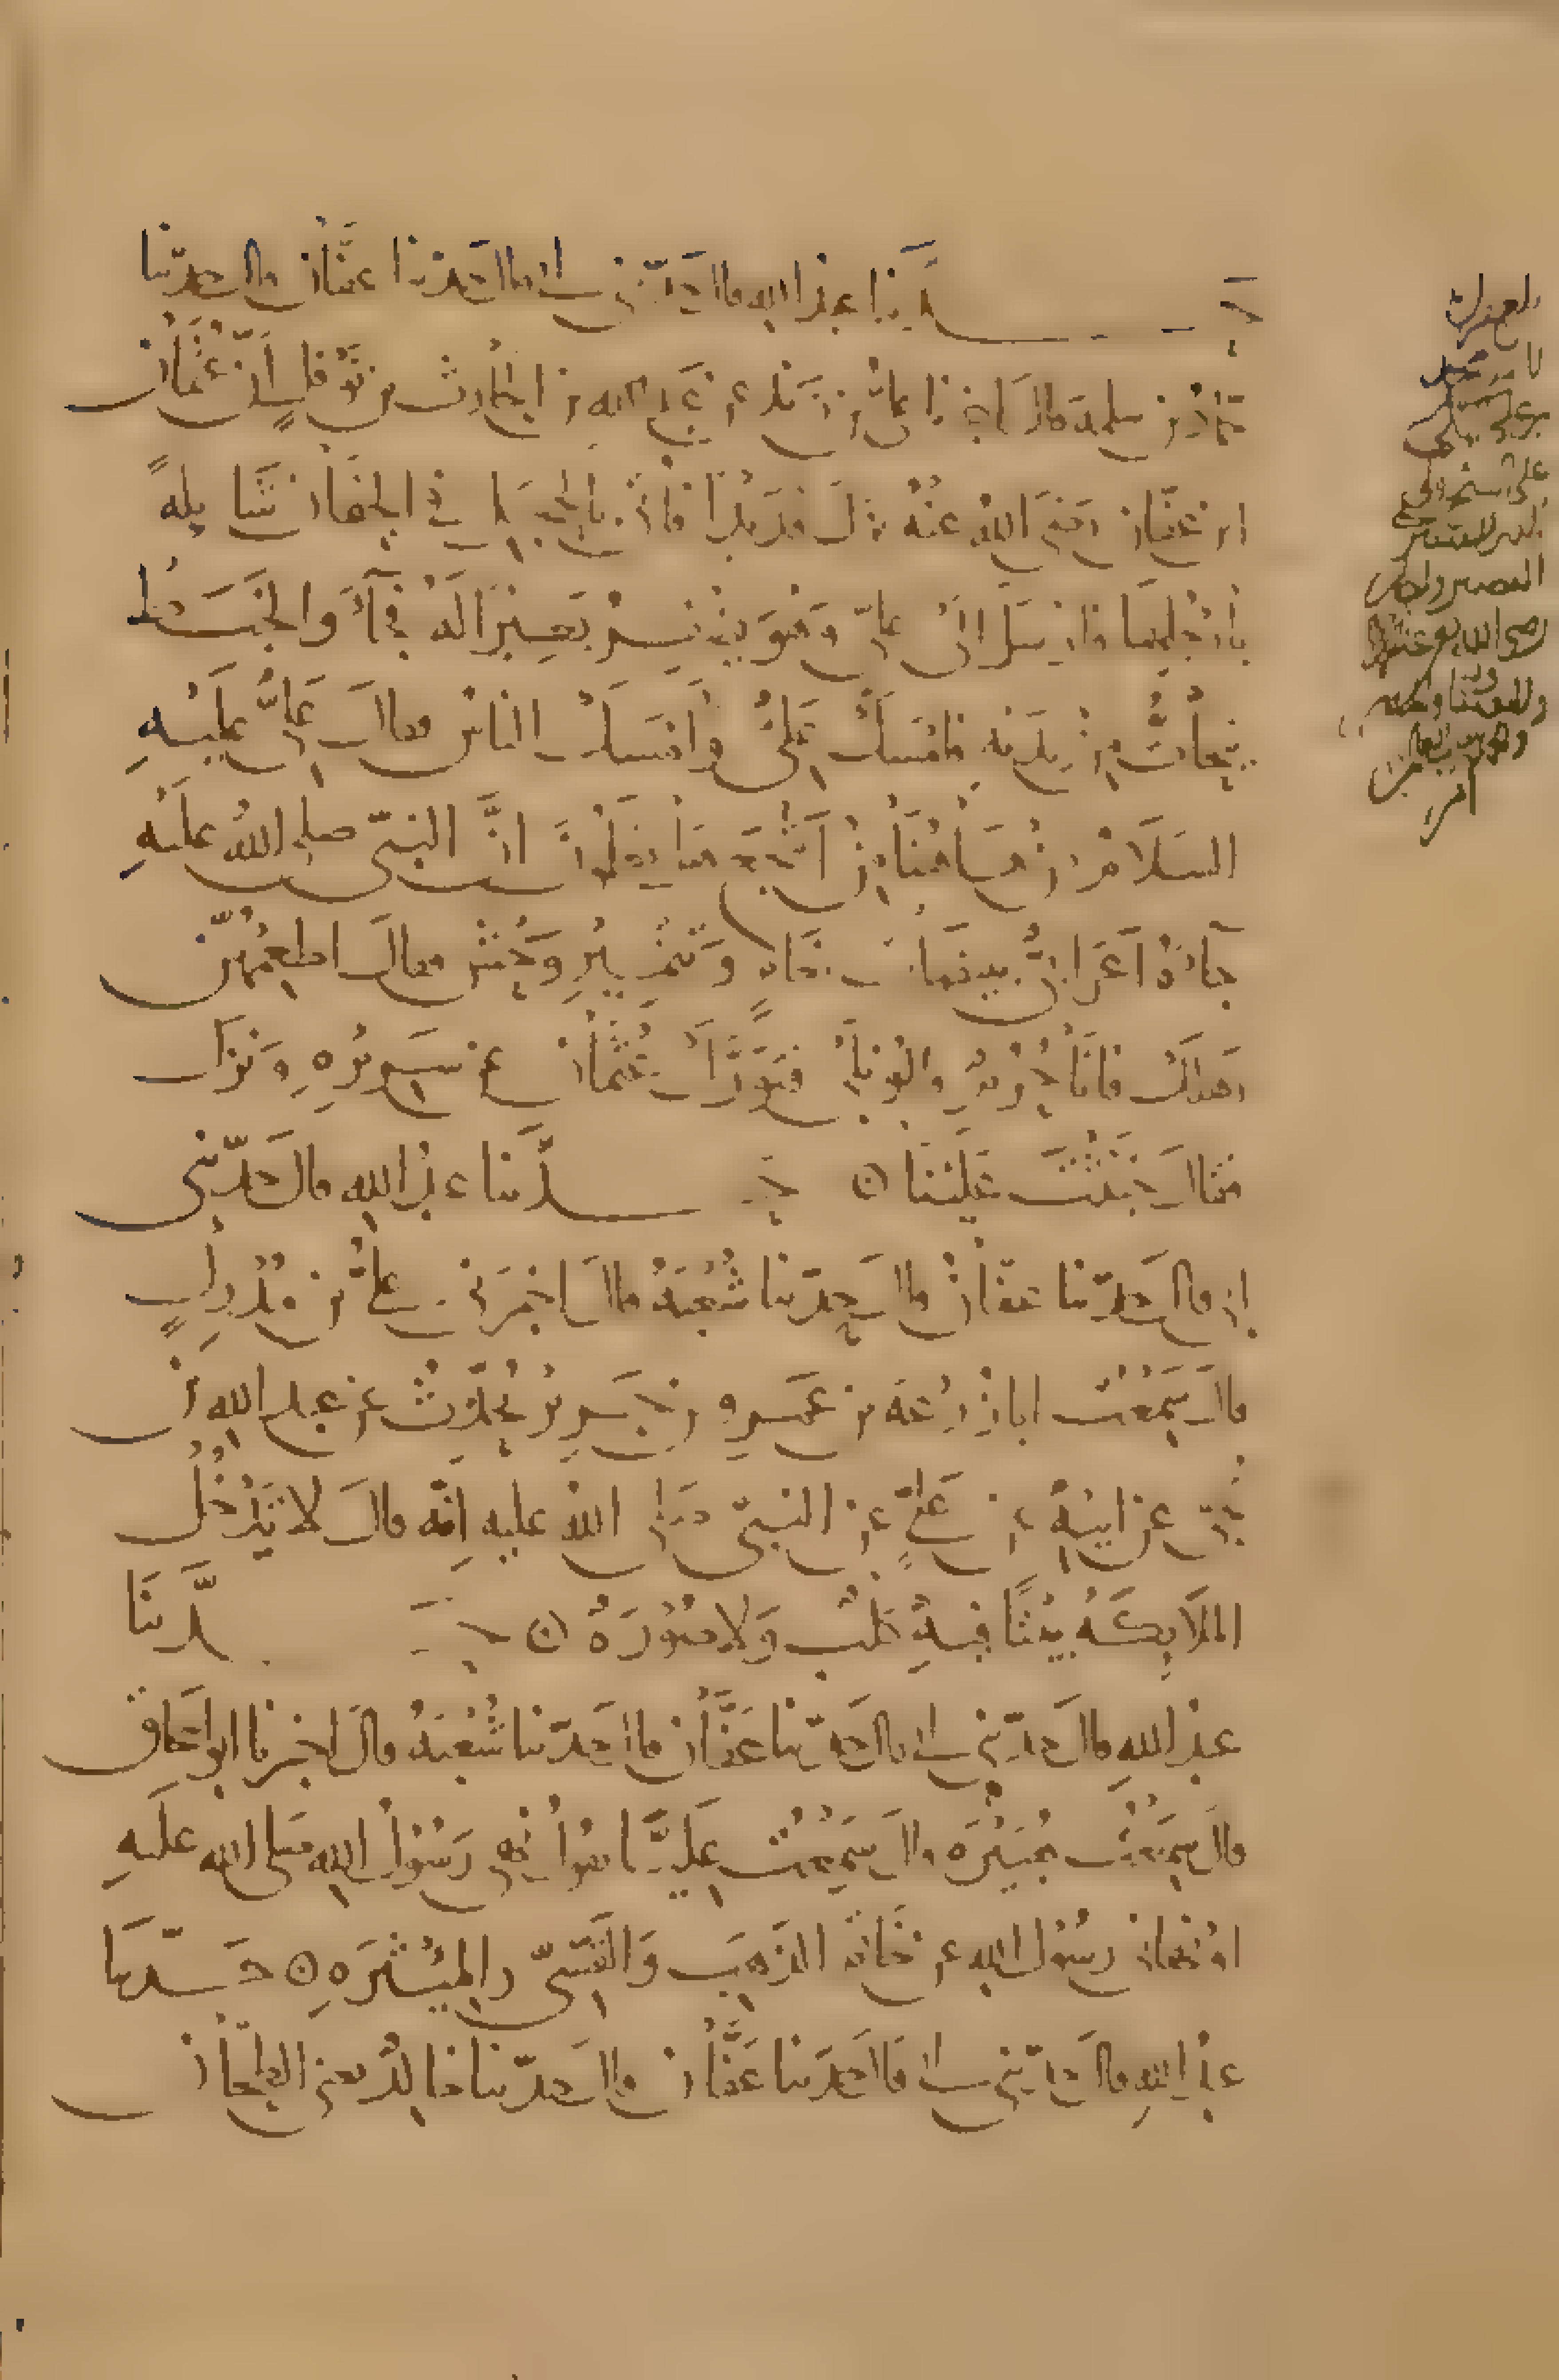 حدثنا عبد الله قال حدثني ابي قال حدثنا عفان قال حدثنا
حماد بن سلمة قال اخبرنا علي بن زيد عن عبد الله بن الحارث بن نوفل ان عثمان
ابن عفان رضي الله عنه نزل قديدا فاتي بالحجل في الجفان شايلة
بارجلها فارسل الى علي وهو يضفز بعيرا له فجآء والخبط
يتحات من يديه فامسك علي وامسك الناس فقال علي عليه
السلام من هاهنا من اشجع هل تعلمون ان النبي صلى الله عليه
جآءه اعرابي ببيضات نعام وتتمير وحش فقال اطعمهن
اهلك فانا حرم قالوا بلى فتورك عثمان عن سريره ونزل
فقال خبثت علينا ۞ حدثنا عبد الله قال حدثني
ابي قال حدثنا عفان قال حدثنا شعبة قال اخبرني علي بن مدرك
قال سمعت ابا زرعة بن عمرو بن جرير يحدث عن عبد الله بن
نجي عن ابيه عن علي عن النبي صلى الله عليه انه قال لا تدخل
الملايكة بيتا فيه كلب ولا صورة ۞ حدثنا
عبد الله قال حدثني ابي قال حدثنا عفان قال حدثنا شعبة قال اخبرنا ابو اسحاق
قال سمعت هبيرة قال سمعت عليا يقول نهى رسول الله صلى الله عليه
او نهاني رسول الله عن خاتم الذهب والقسي والميثرة ۞ حدثنا
عبد الله قال حدثني ابي قال حدثنا عفان قال حدثنا خالد يعني الطحان
رضي الله عنه